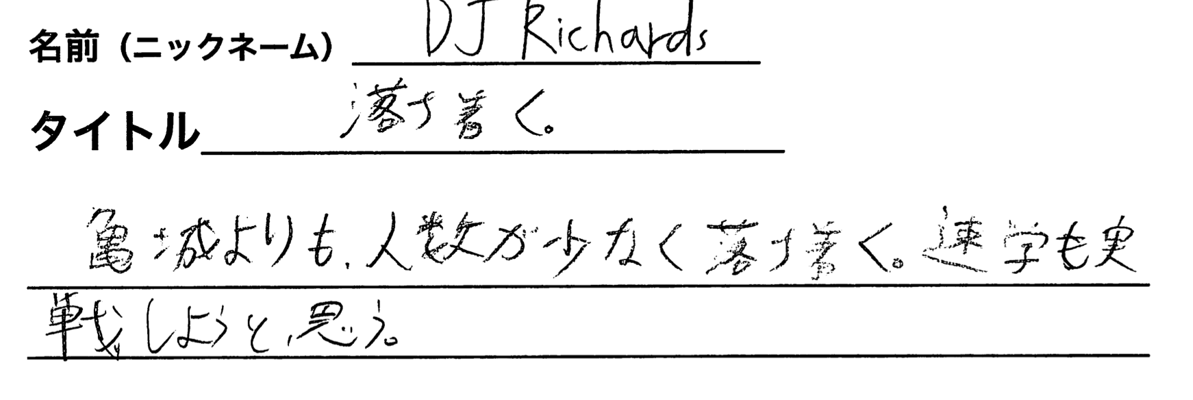 名前（ニックネーム） DJ Richards
タイトル 落ち着く。
亀城よりも、人数が少なく落ち着く。速学も実
戦しようと、思う。